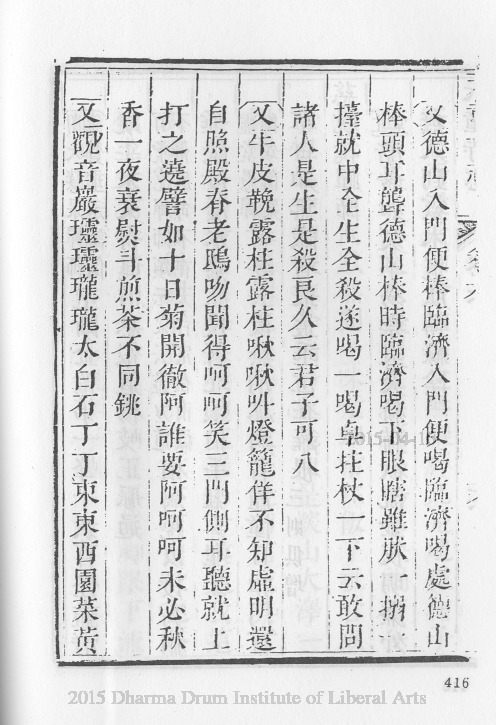 又德山入門便棒臨濟入門便喝臨濟喝處德山
棒頭耳聾德山棒時臨濟喝下眼瞎雖肰一搦一
擡就中全生全殺遂喝一喝卓拄杖一下云敢問
諸人是生是殺良久云君子可八
又牛皮鞔露柱露柱啾啾呌燈籠佯不知虛明還
自照殿脊老鴟吻聞得呵呵笑三門側耳聽就上
打之遶譬如十日菊開徹阿誰要阿呵呵未必秋
香一夜衰熨斗煎茶不同銚
又觀音巖瓏瓏太白石丁丁東東西園菜黃
416
2015 Dharma Drum Institute of Liberal Arts